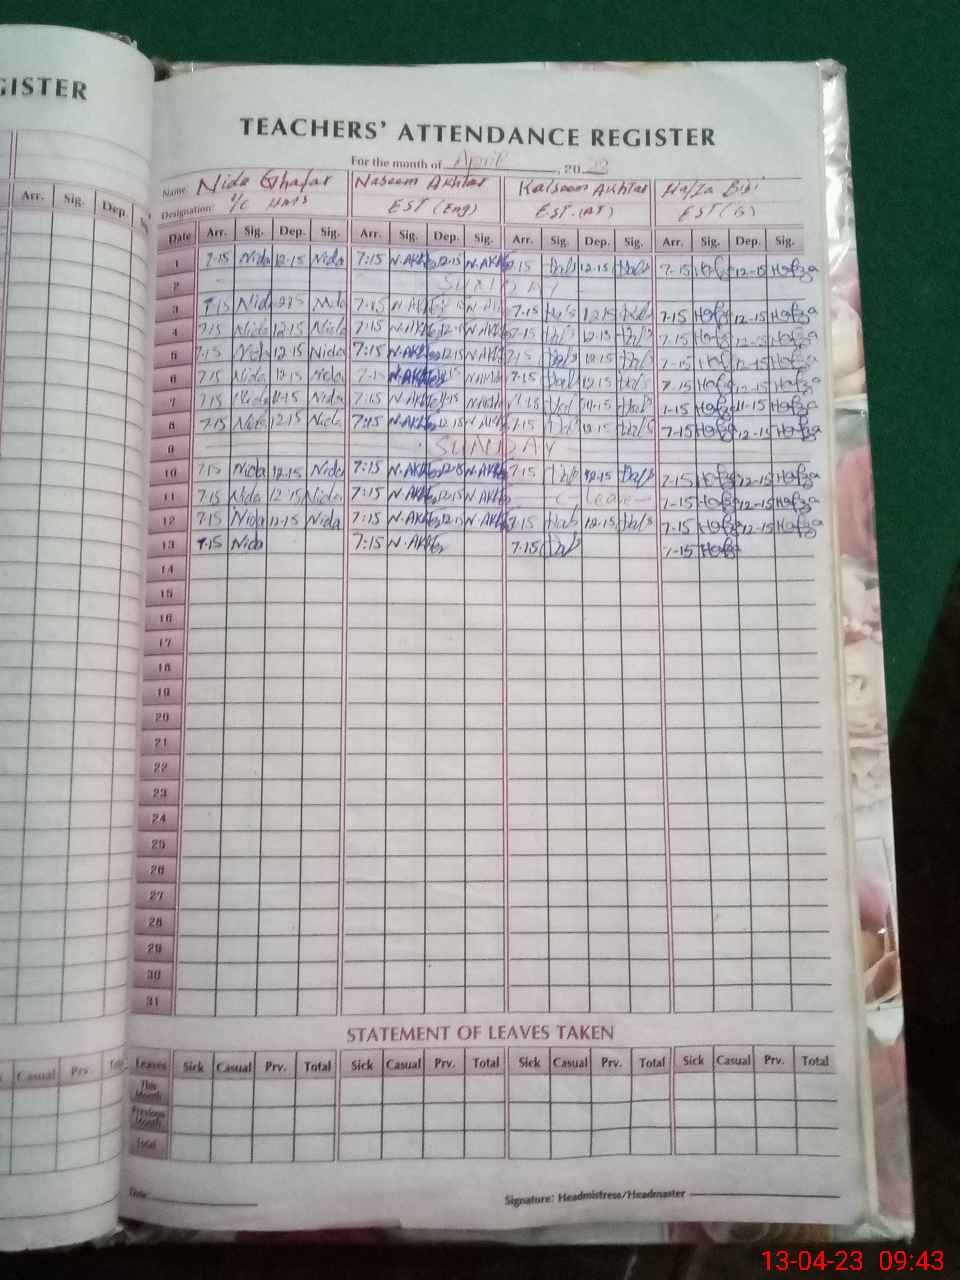 GISTER
TEACHERS' ATTENDANCE REGISTER
For the month of April, 2023
Name: Nida Ghafar Naseem Akhtar Kalseem Akhtar Hafza Bibi
Designation: I/C HMS EST (Eng) EST.(AT) EST(G)
Arr. Sig. Dep. Date Arr. Sig. Dep. Sig. Arr. Sig. Dep. Sig. Arr. Sig. Dep. Sig. Arr. Sig. Dep. Sig.
1 7-15 Nida 12-15 Nida 7:15 N.AKH 12-15 N.AKH 7.15 12-15 7-15 Hafza 12-15 Hafza
2 SUNDAY
3 7-15 Nida Nida 7-15 N.AKH N.AKH 7-15 12-15 7-15 Hafza 12-15 Hafza
4 7-15 Nida 12-15 Nida 7:15 N.AKH 12-15 N.AKH 7-15 12-15 7-15 Hafza 12-15 Hafza
5 7-15 Nida 12-15 Nida 7:15 N.AKH 12-15 N.AKH 7-15 12-15 7-15 Hafza 12-15 Hafza
6 7-15 Nida 12-15 Nida 7-15 N.AKH 12-15 N.AKH 7-15 12-15 7-15 Hafza 12-15 Hafza
7 7-15 Nida 11-15 Nida 7:15 N.AKH 11-15 N.AKH 7-15 11-15 7-15 Hafza 11-15 Hafza
8 7-15 Nida 12-15 Nida 7:15 N.AKH 12-15 N.AKH 7-15 12-15 7-15 Hafza 12-15 Hafza
9 SUNDAY
10 7-15 Nida 12-15 Nida 7:15 N.AKH 12-15 N.AKH 7-15 12-15 7-15 Hafza 12-15 Hafza
11 7-15 Nida 12-15 Nida 7:15 N.AKH 12-15 N.AKH Leave 7-15 Hafza 12-15 Hafza
12 7-15 Nida 12-15 Nida 7:15 N.AKH 12-15 N.AKH 7-15 12-15 7-15 Hafza 12-15 Hafza
13 7-15 Nida 7:15 N.AKH 7-15 7-15 Hafza
14
15
16
17
18
19
20
21
22
23
24
25
26
27
28
29
30
31
STATEMENT OF LEAVES TAKEN
Casual Prv. Leaves Sick Casual Prv. Total Sick Casual Prv. Total Sick Casual Prv. Total Sick Casual Prv. Total
This Month
Previous Month
Total
Date Signature: Headmistress/Headmaster
13-04-23 09:43